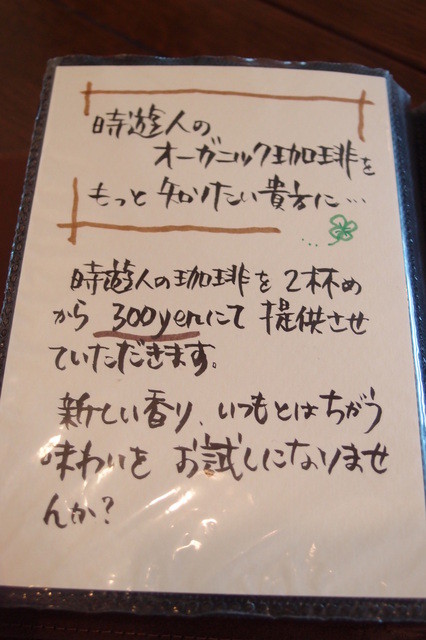 時遊人の
オーガニック珈琲を
もっと知りたい貴方に…
時遊人の珈琲を2杯め
から300yenにて提供させ
ていただきます。
新しい香り、いつもとはちがう
味わいをお試しになりませ
んか?